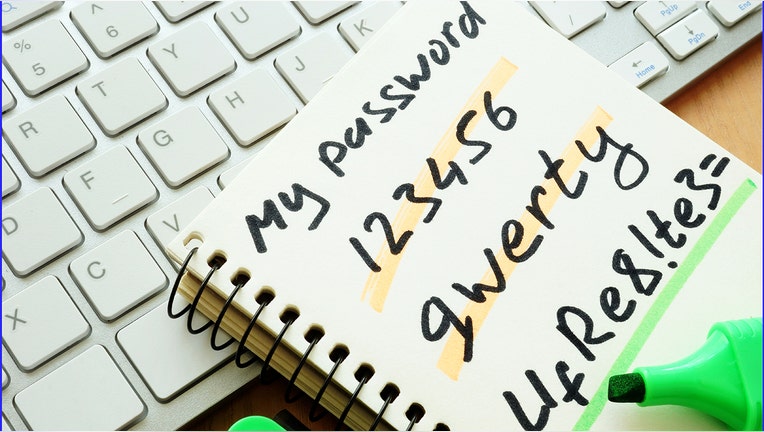 My password
123456
qwerty
UfRe8!te3=
^ 6
% 5
T
Y
U
R
F
G
H
J
K
D
C
V
X
PgUp
PgDn
Home
End